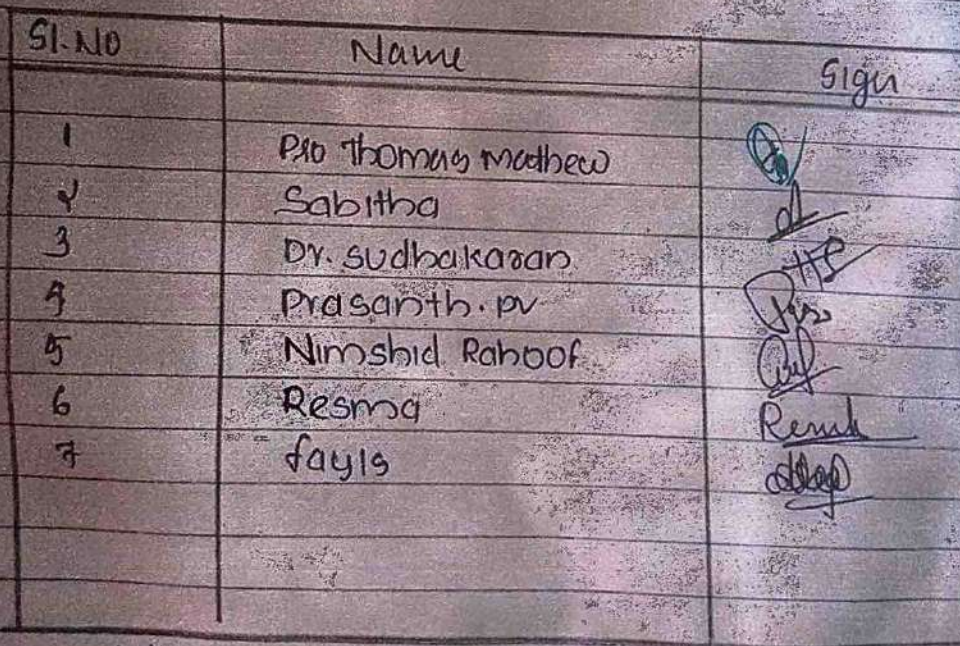 Sl.No Name Sign
1 Pro Thomas Mathew
2 Sabitha
3 Dr. Sudhakaran
4 Prasanth.pv
5 Nimshid Rahoof
6 Resma
7 fayis